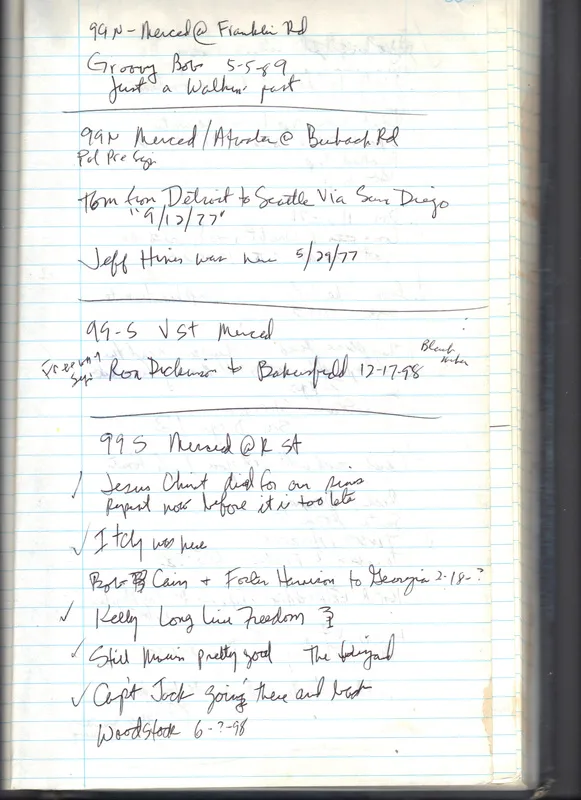 99N - Merced @ Franklin Rd
Groovy Bob 5-5-89
Just a Walkin' past
99N Merced/Atwater @ Buhach Rd
Pol Pre Sign
Tom from Detroit to Seattle Via San Diego
"9/12/77"
Jeff Hines was here 5/29/77
99-S V St Merced
Freeway
Sign Ron Dickinson to Bakersfield 12-17-98
Black
99 S Merced @ R St
Jesus Christ died for our sins
Repent now before it is too late
✓ Itchy was here
Bob Cain + Foster Harrison to Georgia 2-18-?
✓ Kelly Long Live Freedom
✓ Still Movin pretty good The
✓ Cap't Jack going there and back
Woodstock 6-?-98